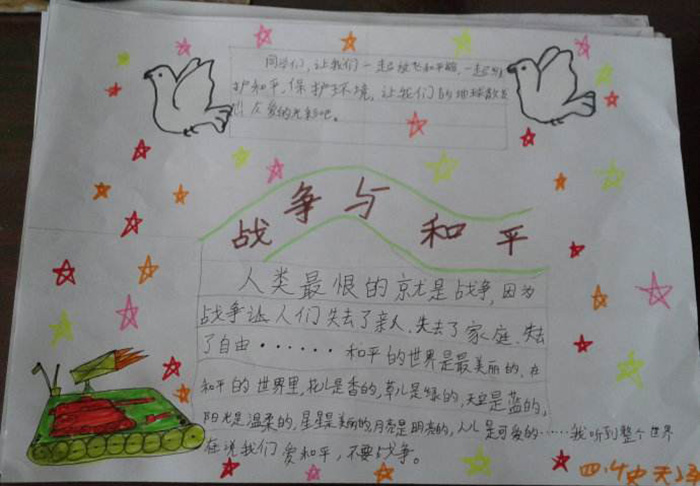 同学们，让我们一起放飞和平鸽，一起
护和平，保护环境，让我们的地球散发
出友爱的光彩吧。
战争与和平
人类最恨的就是战争，因为
战争让人们失去了亲人、失去了家庭、失去
了自由······和平的世界是最美丽的，在
和平的世界里，花儿是香的，草儿是绿的，天空是蓝的，
阳光是温柔的，星星是美丽的，月亮是明亮的，人儿是可爱的······我听到整个世界
在说我们爱和平，不要战争。
四.4史天